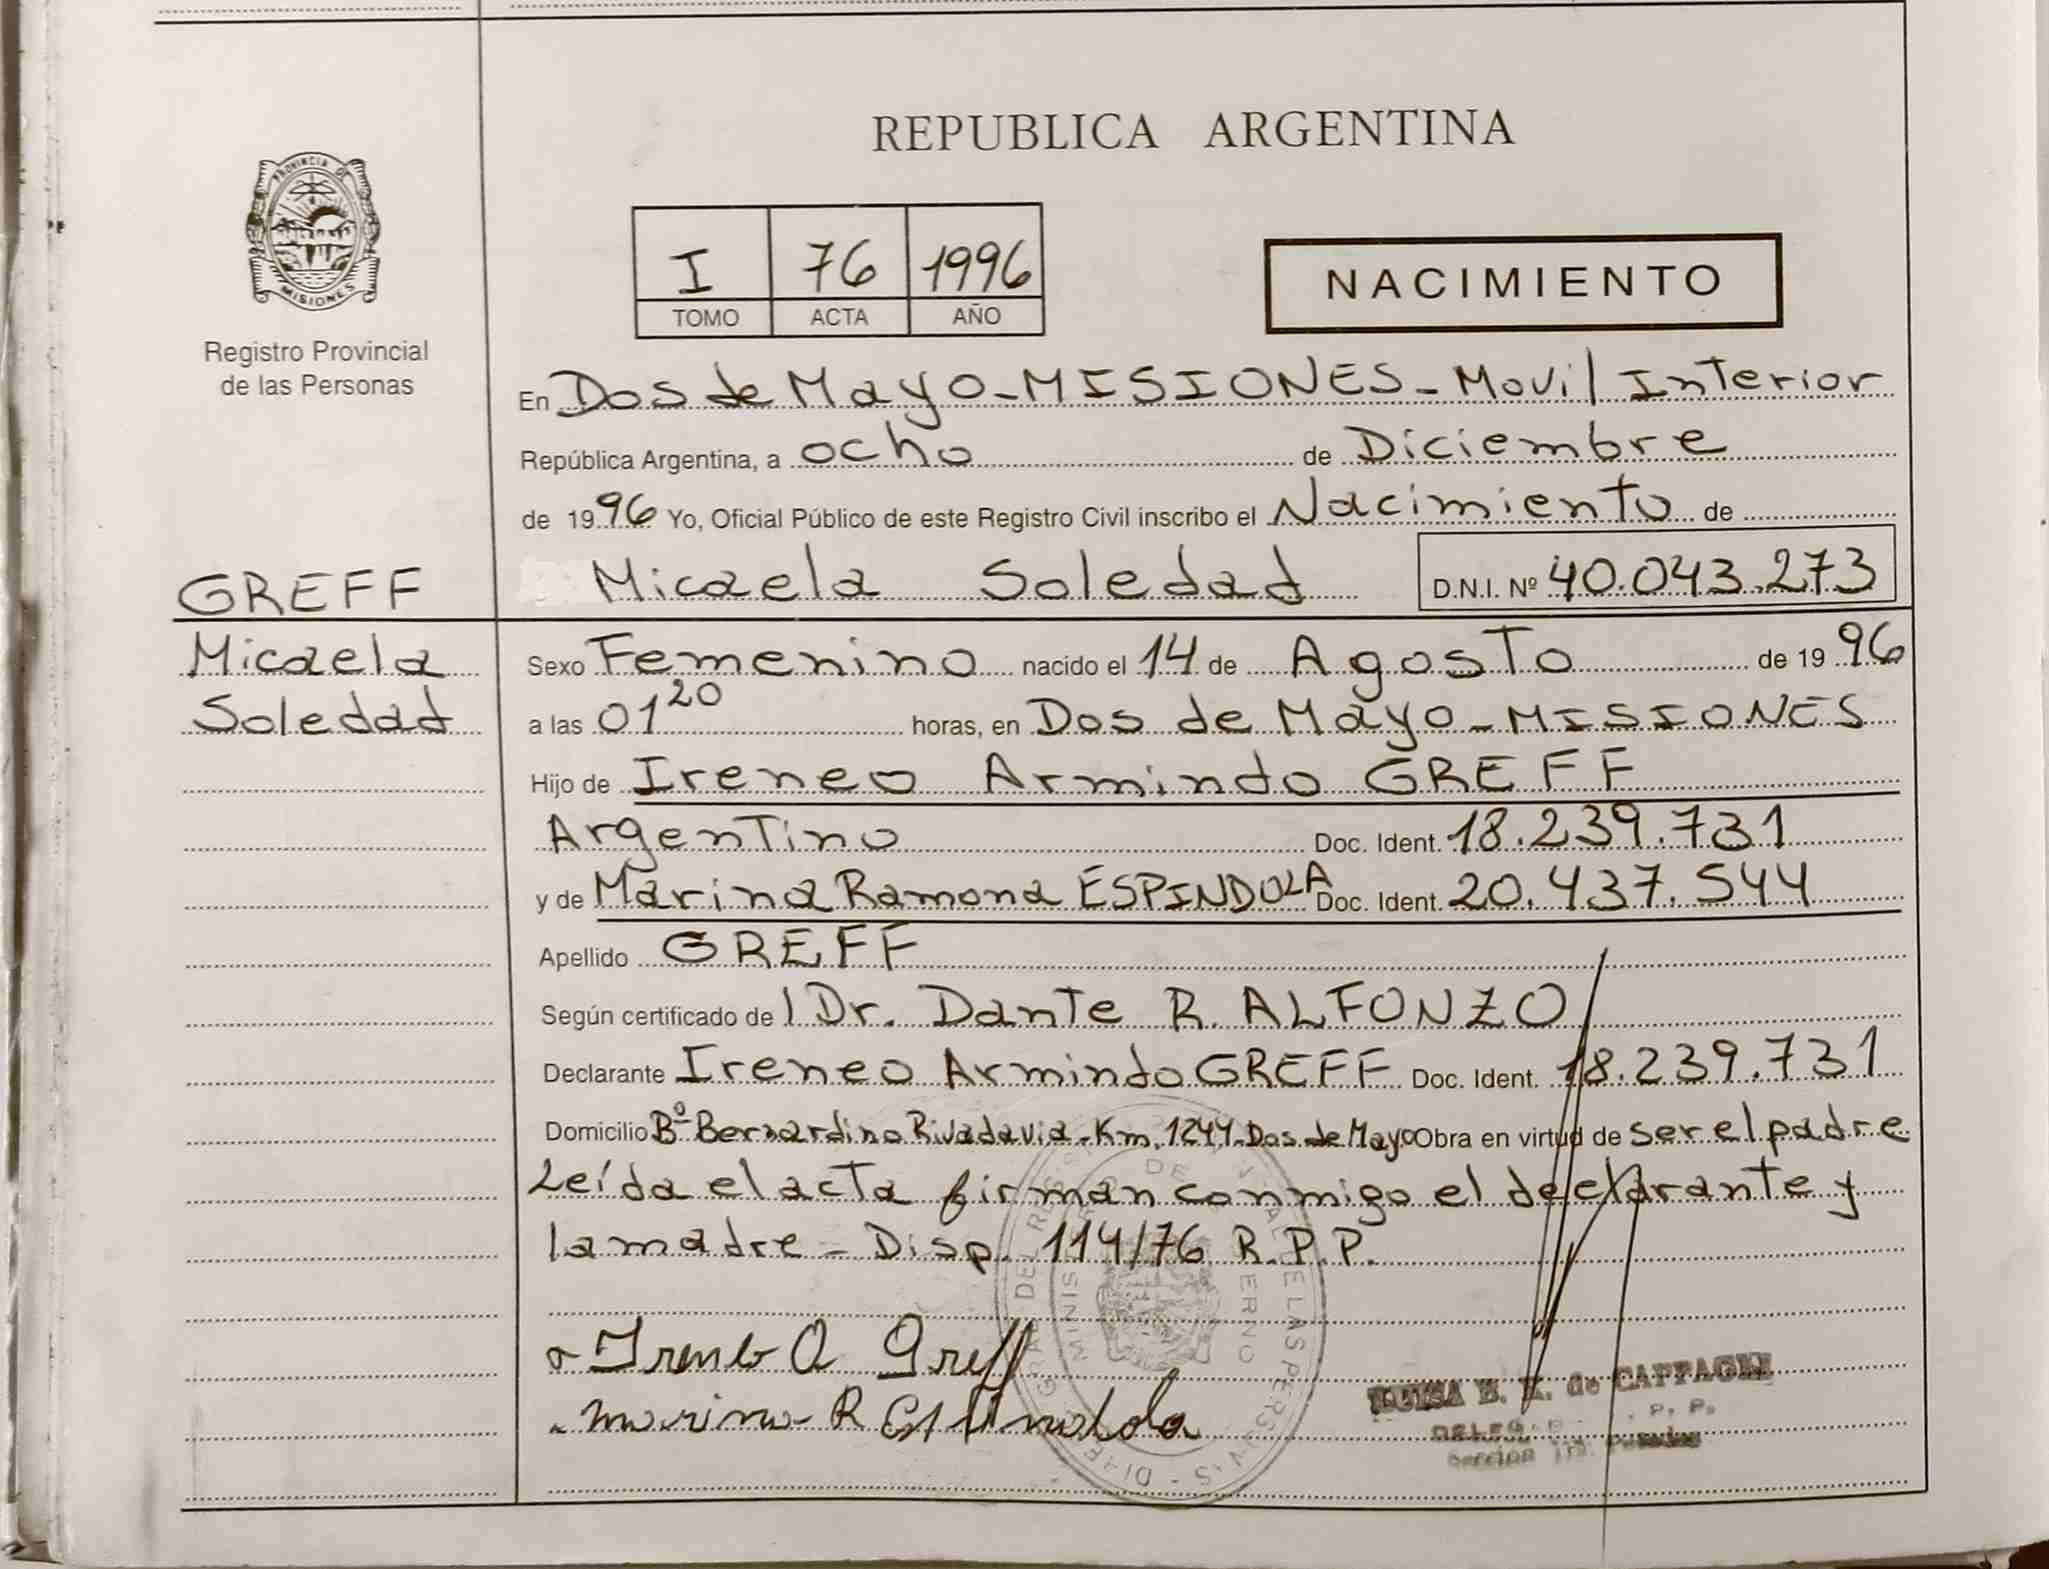 PROVINCIA DE
MISIONES
Registro Provincial
de las Personas
GREFF
Micaela
Soledad
REPUBLICA ARGENTINA
I 76 1996
TOMO ACTA AÑO
NACIMIENTO
En Dos de Mayo - MISIONES - Movil Interior
República Argentina, a ocho de Diciembre
de 1996 Yo, Oficial Público de este Registro Civil inscribo el Nacimiento de
Micaela Soledad D.N.I. Nº 40.043.273
Sexo Femenino nacido el 14 de Agosto de 1996
a las 01 20 horas, en Dos de Mayo - MISIONES
Hijo de Ireneo Armindo GREFF
Argentino Doc. Ident. 18.239.731
y de Marina Ramona ESPINDOLA Doc. Ident. 20.437.544
Apellido GREFF
Según certificado de l Dr. Dante R. ALFONZO
Declarante Ireneo Armindo GREFF Doc. Ident. 18.239.731
Domicilio Bº Bernardino Rivadavia - Km. 1244 - Dos de Mayo Obra en virtud de ser el padre
Leída el acta firman conmigo el declarante y
la madre - Disp. 114/76 R.P.P.
Ireneo A Greff
Marina R Espindola
B. K. de